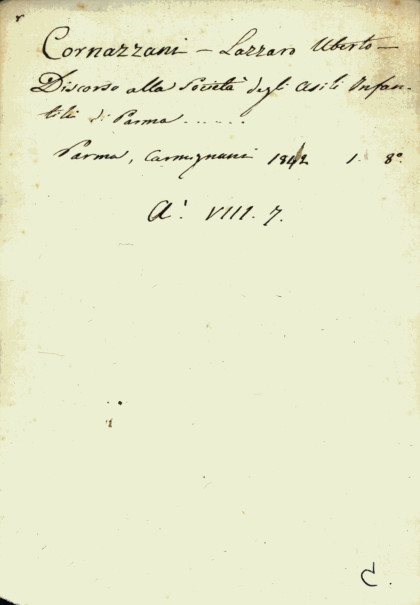 Cornazzani – Lazzaro Uberto –
Discorso alla Società degli Asili Infan-
tili di Parma ......
Parma, Carmignani 1842 1. 8º.
A. VIII. 7.
C.